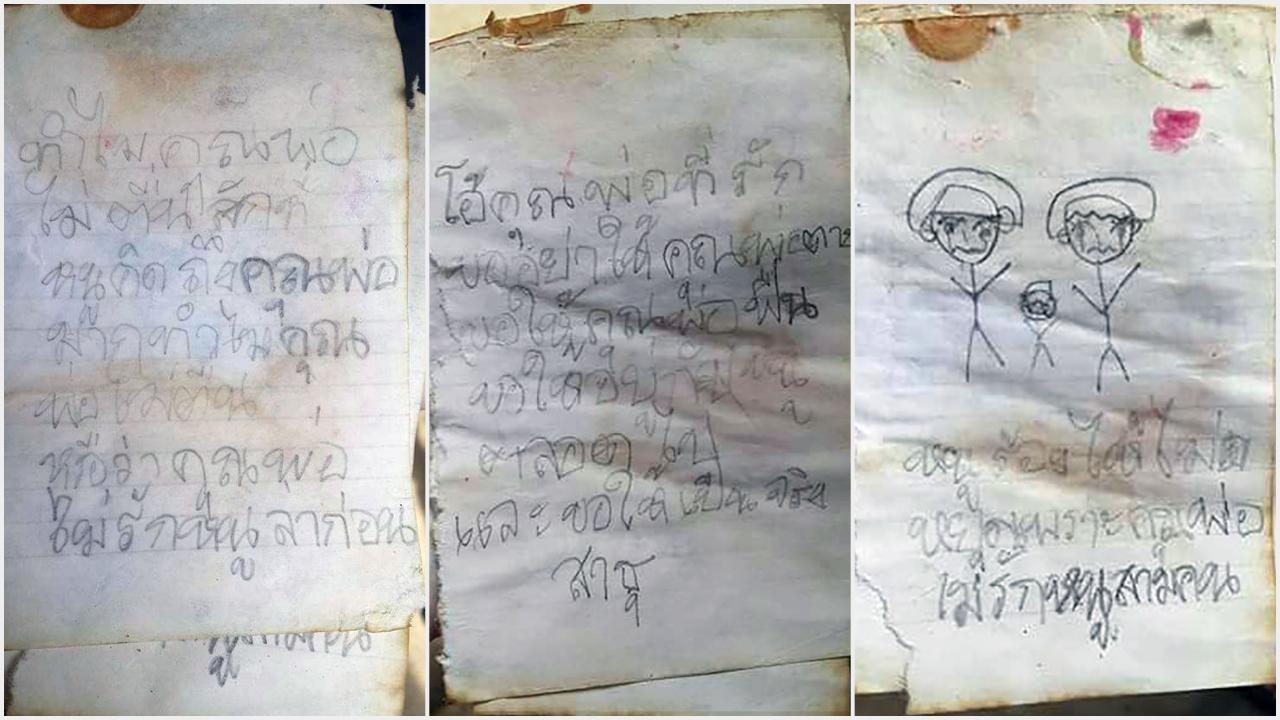 ทำไมคุณพ่อ
ไม่ตื่นสักที
หนูคิดถึงคุณพ่อ
มากทำไมคุณ
พ่อไม่ตื่น
หรือว่าคุณพ่อ
ไม่รักหนูลาก่อน
โอ้คุณพ่อที่รัก
ขออย่าให้คุณพ่อตาย
ขอให้คุณพ่อฟื้น
ขอให้อยู่กับหนู
ตลอดไป
และขอให้เป็นจริง
สาธุ
หนูร้องไห้ไม่
หยุดเพราะคุณพ่อ
ไม่รักหนูสามคน